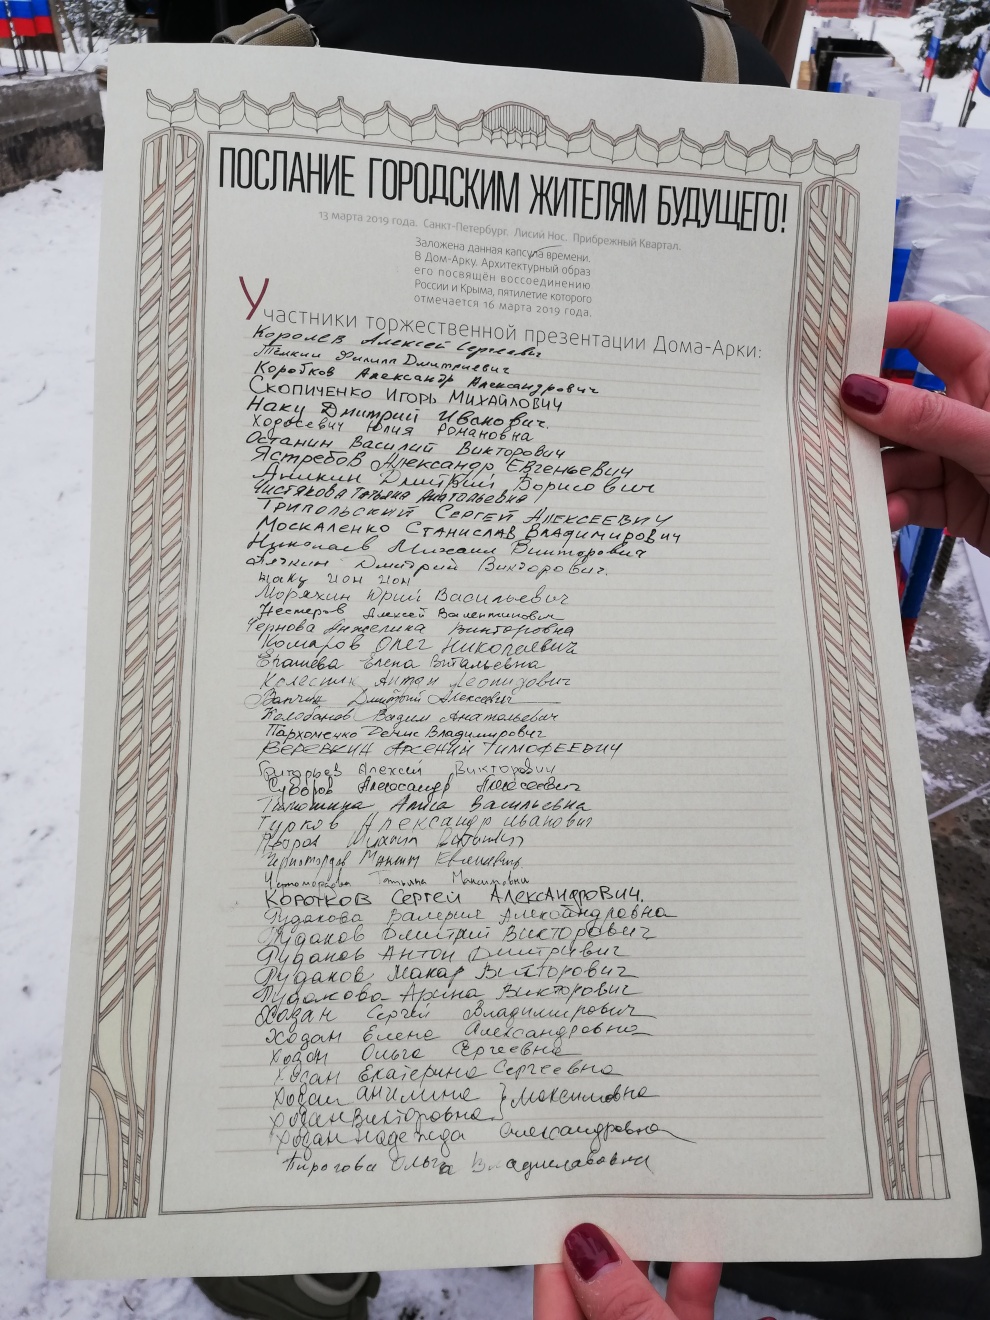 ПОСЛАНИЕ ГОРОДСКИМ ЖИТЕЛЯМ БУДУЩЕГО!
13 марта 2019 года. Санкт-Петербург. Лисий Нос. Прибрежный Квартал.
Заложена данная капсула времени.
В Дом-Арку. Архитектурный образ
его посвящён воссоединению
России и Крыма, пятилетие которого
отмечается 16 марта 2019 года.
Участники торжественной презентации Дома-Арки:
Королев Алексей Сергеевич
Тёмкин Филипп Дмитриевич
Коротков Александр Александрович
СКОПИЧЕНКО ИГОРЬ МИХАЙЛОВИЧ
Наку Дмитрий Иванович.
Ходосевич Юлия Романовна
Останин Василий Викторович
Ястребов Александр Евгеньевич
Дмитрий Борисович
Чистякова Татьяна Анатольевна
Трипольский Сергей Алексеевич
Москаленко Станислав Владимирович
Николаев Михаил Викторович
Дмитрий Викторович.
Наку Ион Ион
Моряхин Юрий Васильевич
Нестеров Алексей Валентинович
Чернова Анжелика Викторовна
Комаров Олег Николаевич
Елена Витальевна
Колесник Антон Леонидович
Дмитрий Алексеевич
Колобанов Вадим Анатольевич
Пархоменко Денис Владимирович
ВЕРЕВКИН АРСЕНИЙ ТИМОФЕЕВИЧ
Григорьев Алексей Викторович
Суворов Александр Алексеевич
Тимошкина Алиса Васильевна
Турков Александр Иванович
Михаил
Черномордов Максим Евгеньевич
Татьяна Максимовна
КОРОТКОВ СЕРГЕЙ АЛЕКСАНДРОВИЧ.
Рудакова Валерия Александровна
Рудаков Дмитрий Викторович
Рудаков Антон Дмитриевич
Рудаков Макар Викторович
Рудакова Арина Викторович
Ходан Сергей Владимирович
Ходан Елена Александровна
Ходан Ольга Сергеевна
Ходан Екатерина Сергеевна
Ходан Максимовна
Ходан Виктор­овна
Ходан Надежда Александровна
Пирогова Ольга Владиславовна